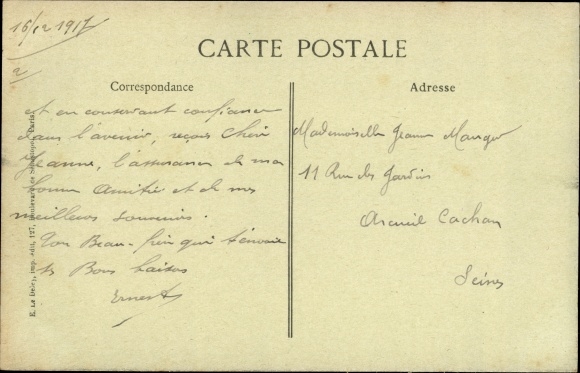 16/12 1917
2
CARTE POSTALE
Correspondance
et en conservant confiance
dans l'avenir, reçois Chère
Jeanne, l'assurance de ma
bonne Amitié et de mes
meilleurs souvenirs.
Ton Beau-frère qui t'envoie
ts Bons baisers
Ernest
Adresse
Mademoiselle Jeanne
11 Rue des Jardins
Arcueil Cachan
Seine
E. Le Deley, imp. édit., 127, Boulevard de Sébastopol, Paris